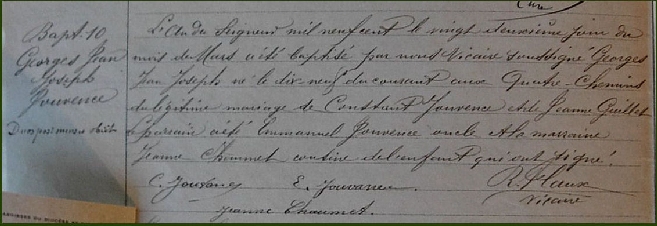 Bapt. 10
Georges Jean
Joseph
Jouvence
L'An du Seigneur mil neuf cent le vingt deuxième jour du
mois de Mars a été baptisé par nous Vicaire soussigné Georges
Jean Joseph né le dix neuf du courant aux Quatre-Chemins
du légitime mariage de Constant Jouvence et de Jeanne Guillet
le parrain a été Emmanuel Jouvence oncle et la marraine
Jeanne Chaumet cousine de l'enfant qui ont signé.
C. Jouvence E. Jouvence R. Flaux
Vicaire
Jeanne Chaumet.